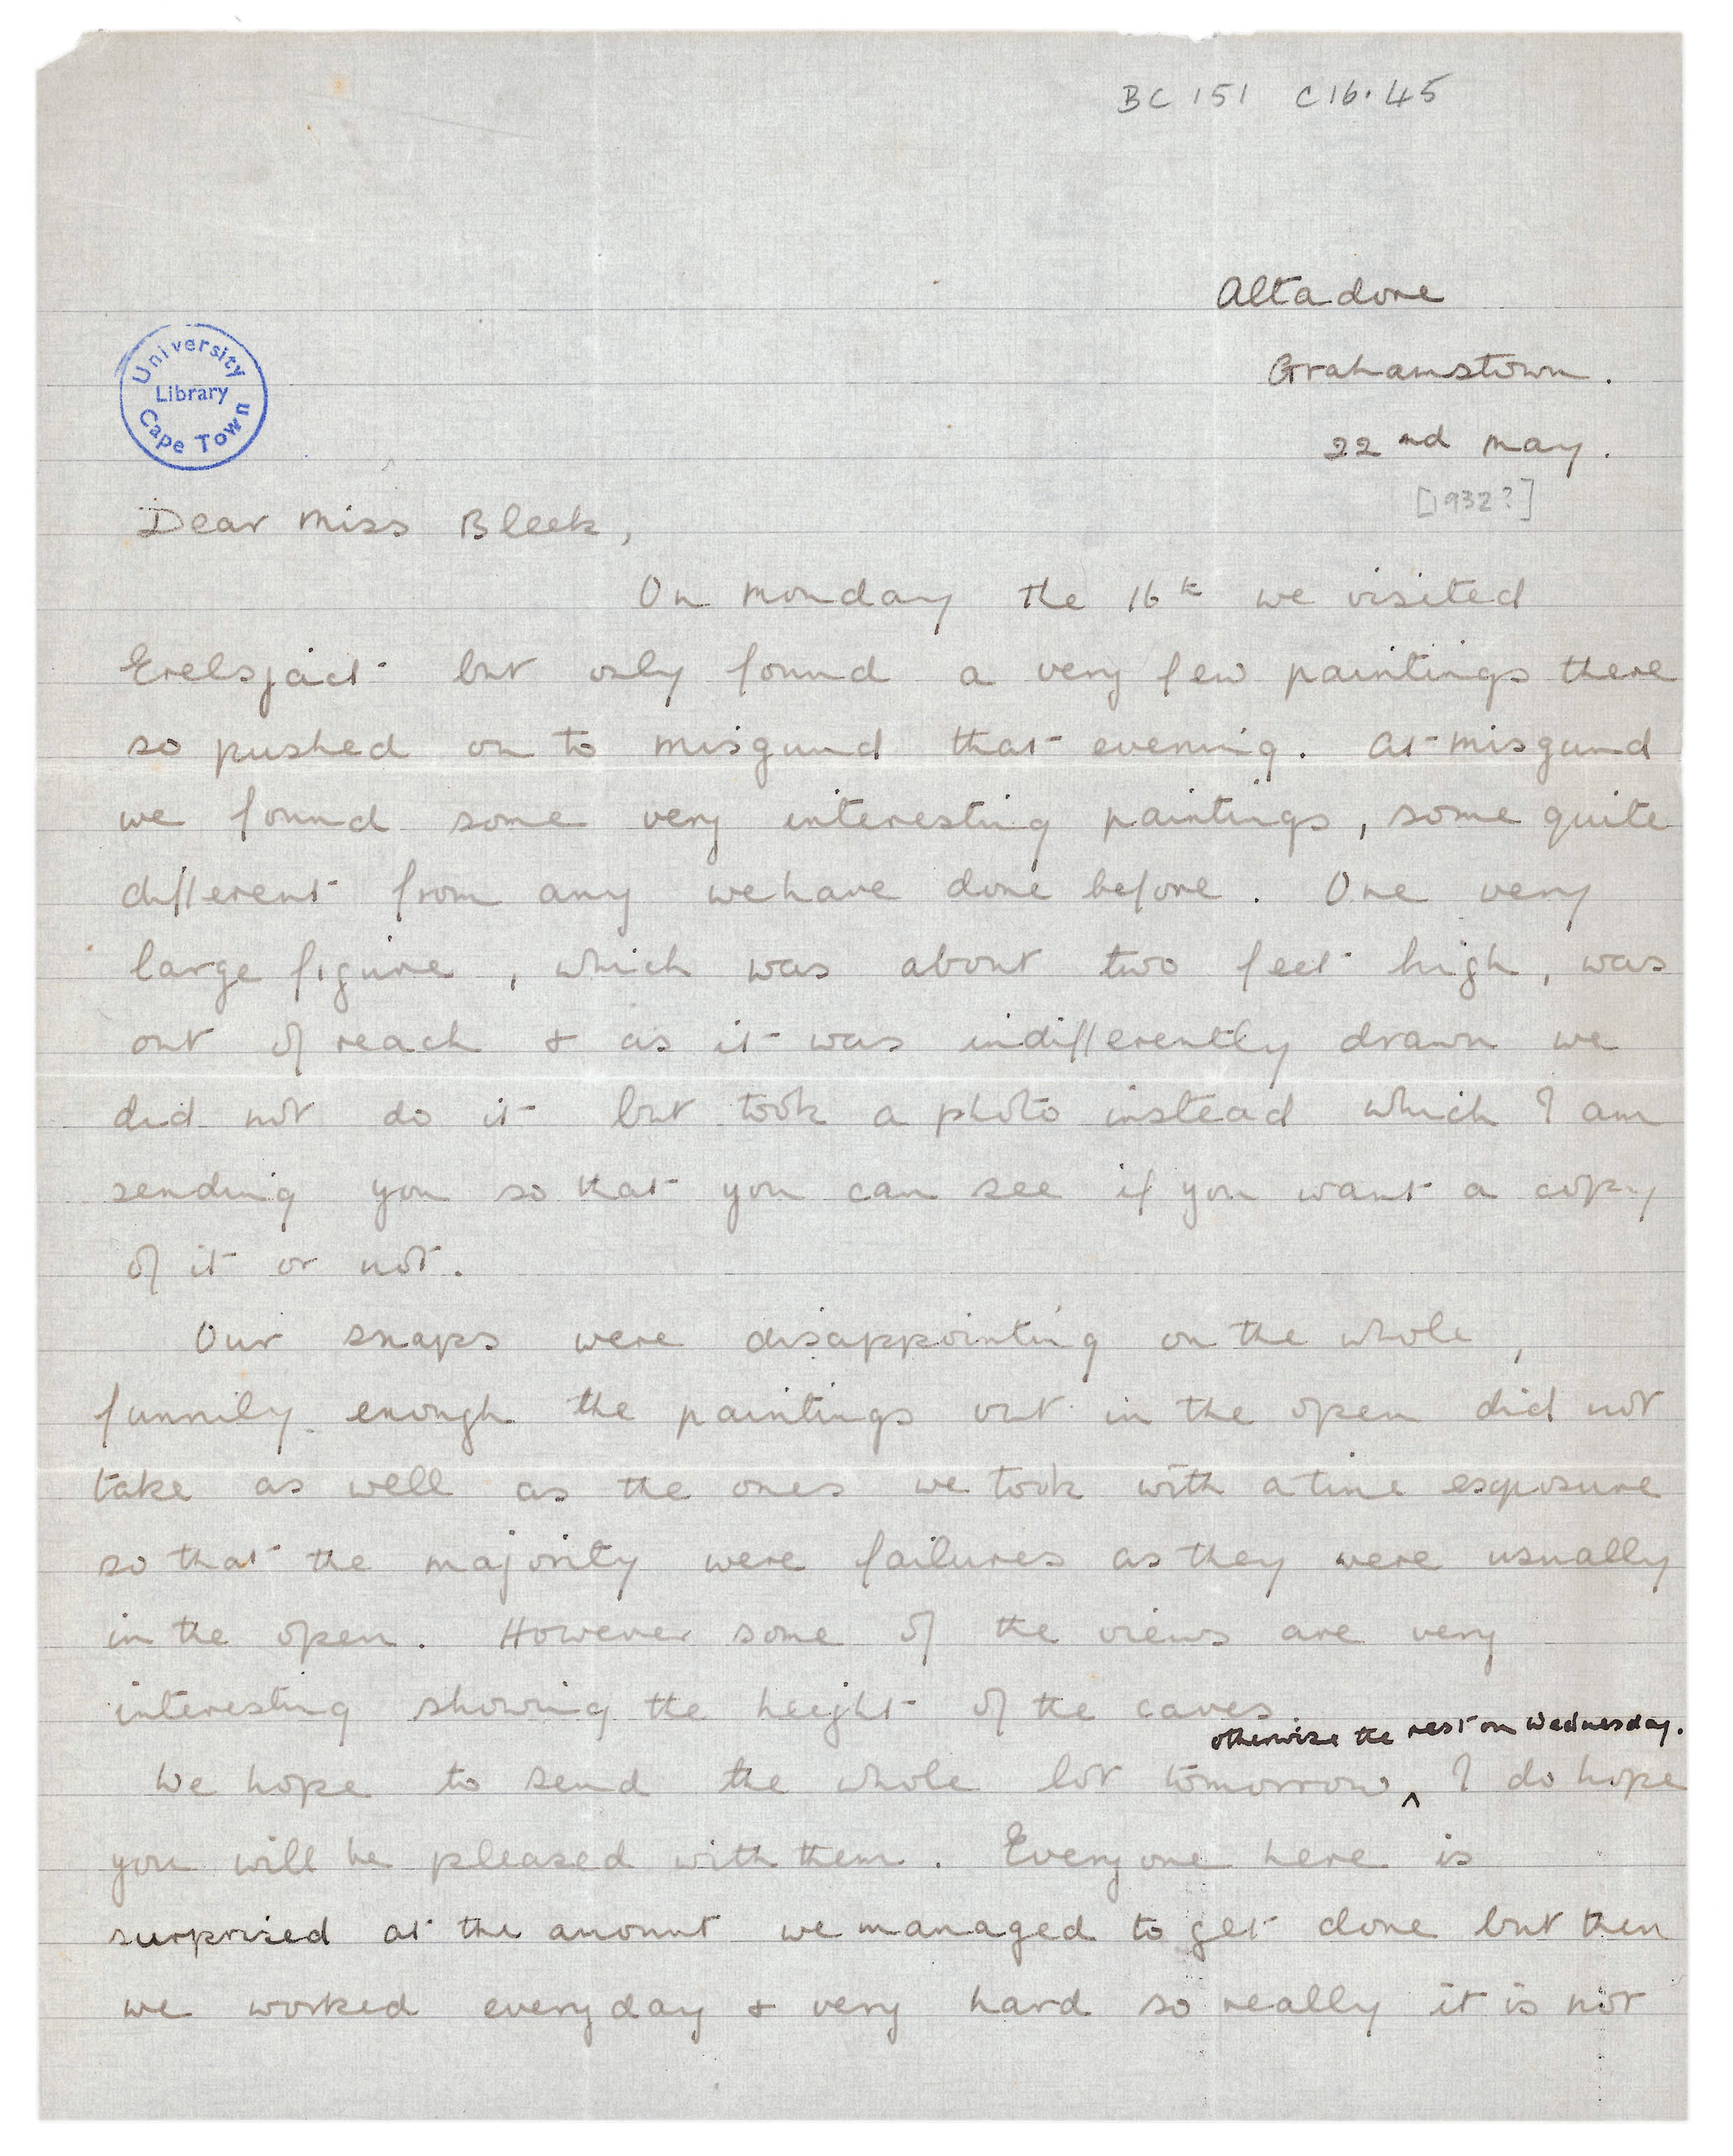 BC 151 C16.45
Altadore
Grahamstown.
22nd May.
[1932?]
University
Library
Cape Town
Dear Miss Bleek,
On Monday the 16th we visited
but only found a very few paintings there
so pushed on to Misgund that evening. At Misgund
we found some very interesting paintings, some quite
different from any we have done before. One very
large figure, which was about two feet high, was
out of reach & as it was indifferently drawn we
did not do it but took a photo instead which I am
sending you so that you can see if you want a copy
of it or not.
Our snaps were disappointing on the whole,
funnily enough the paintings out in the open did not
take as well as the ones we took with a time exposure
so that the majority were failures as they were usually
in the open. However some of the views are very
interesting showing the height of the caves
otherwise the rest on Wednesday.
We hope to send the whole lot tomorrow ^ I do hope
you will be pleased with them. Everyone here is
surprised at the amount we managed to get done but then
we worked everyday & very hard so really it is not